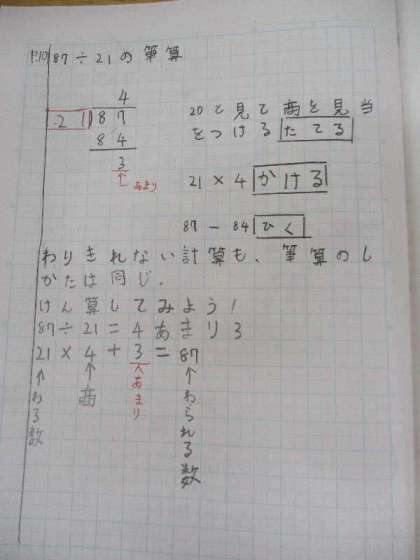 P.10 87÷21の筆算
4
21)87
84
3
あまり
20と見て商を見当
をつける たてる
21×4 かける
87-84 ひく
わりきれない計算も、筆算のし
かたは同じ。
けん算してみよう!
87÷21=4あまり3
21×4+3=87
↑わる数
↑商
↑あまり
↑わられる数